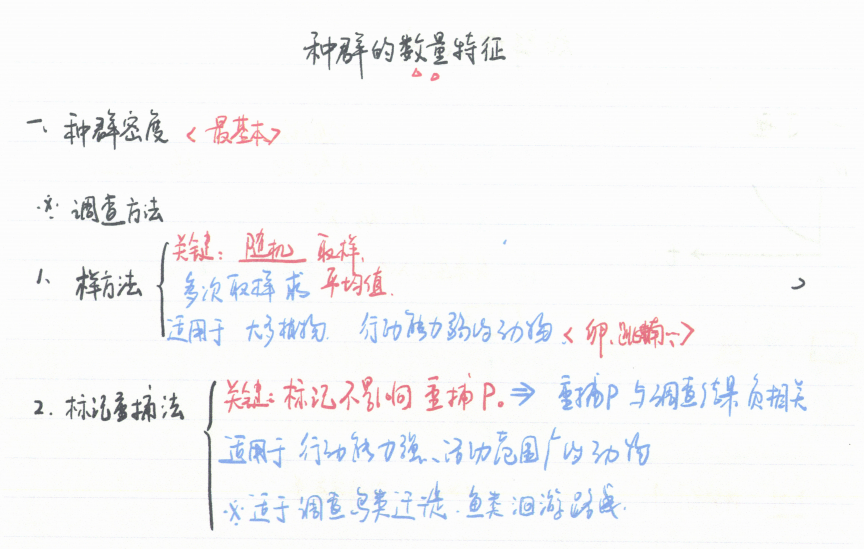 种群的数量特征
一、种群密度 <最基本>
※ 调查方法
关键：随机 取样.
1、样方法
多次取样 求 平均值.
适用于 大多植物. 行动能力弱的动物 <卵、跳蝻…>
关键：标记不影响 重捕P。⇒ 重捕P 与调查结果 负相关
2. 标记重捕法
适用于 行动能力强、活动范围广的动物
※ 适于调查鸟类迁徙. 鱼类 洄游路线.